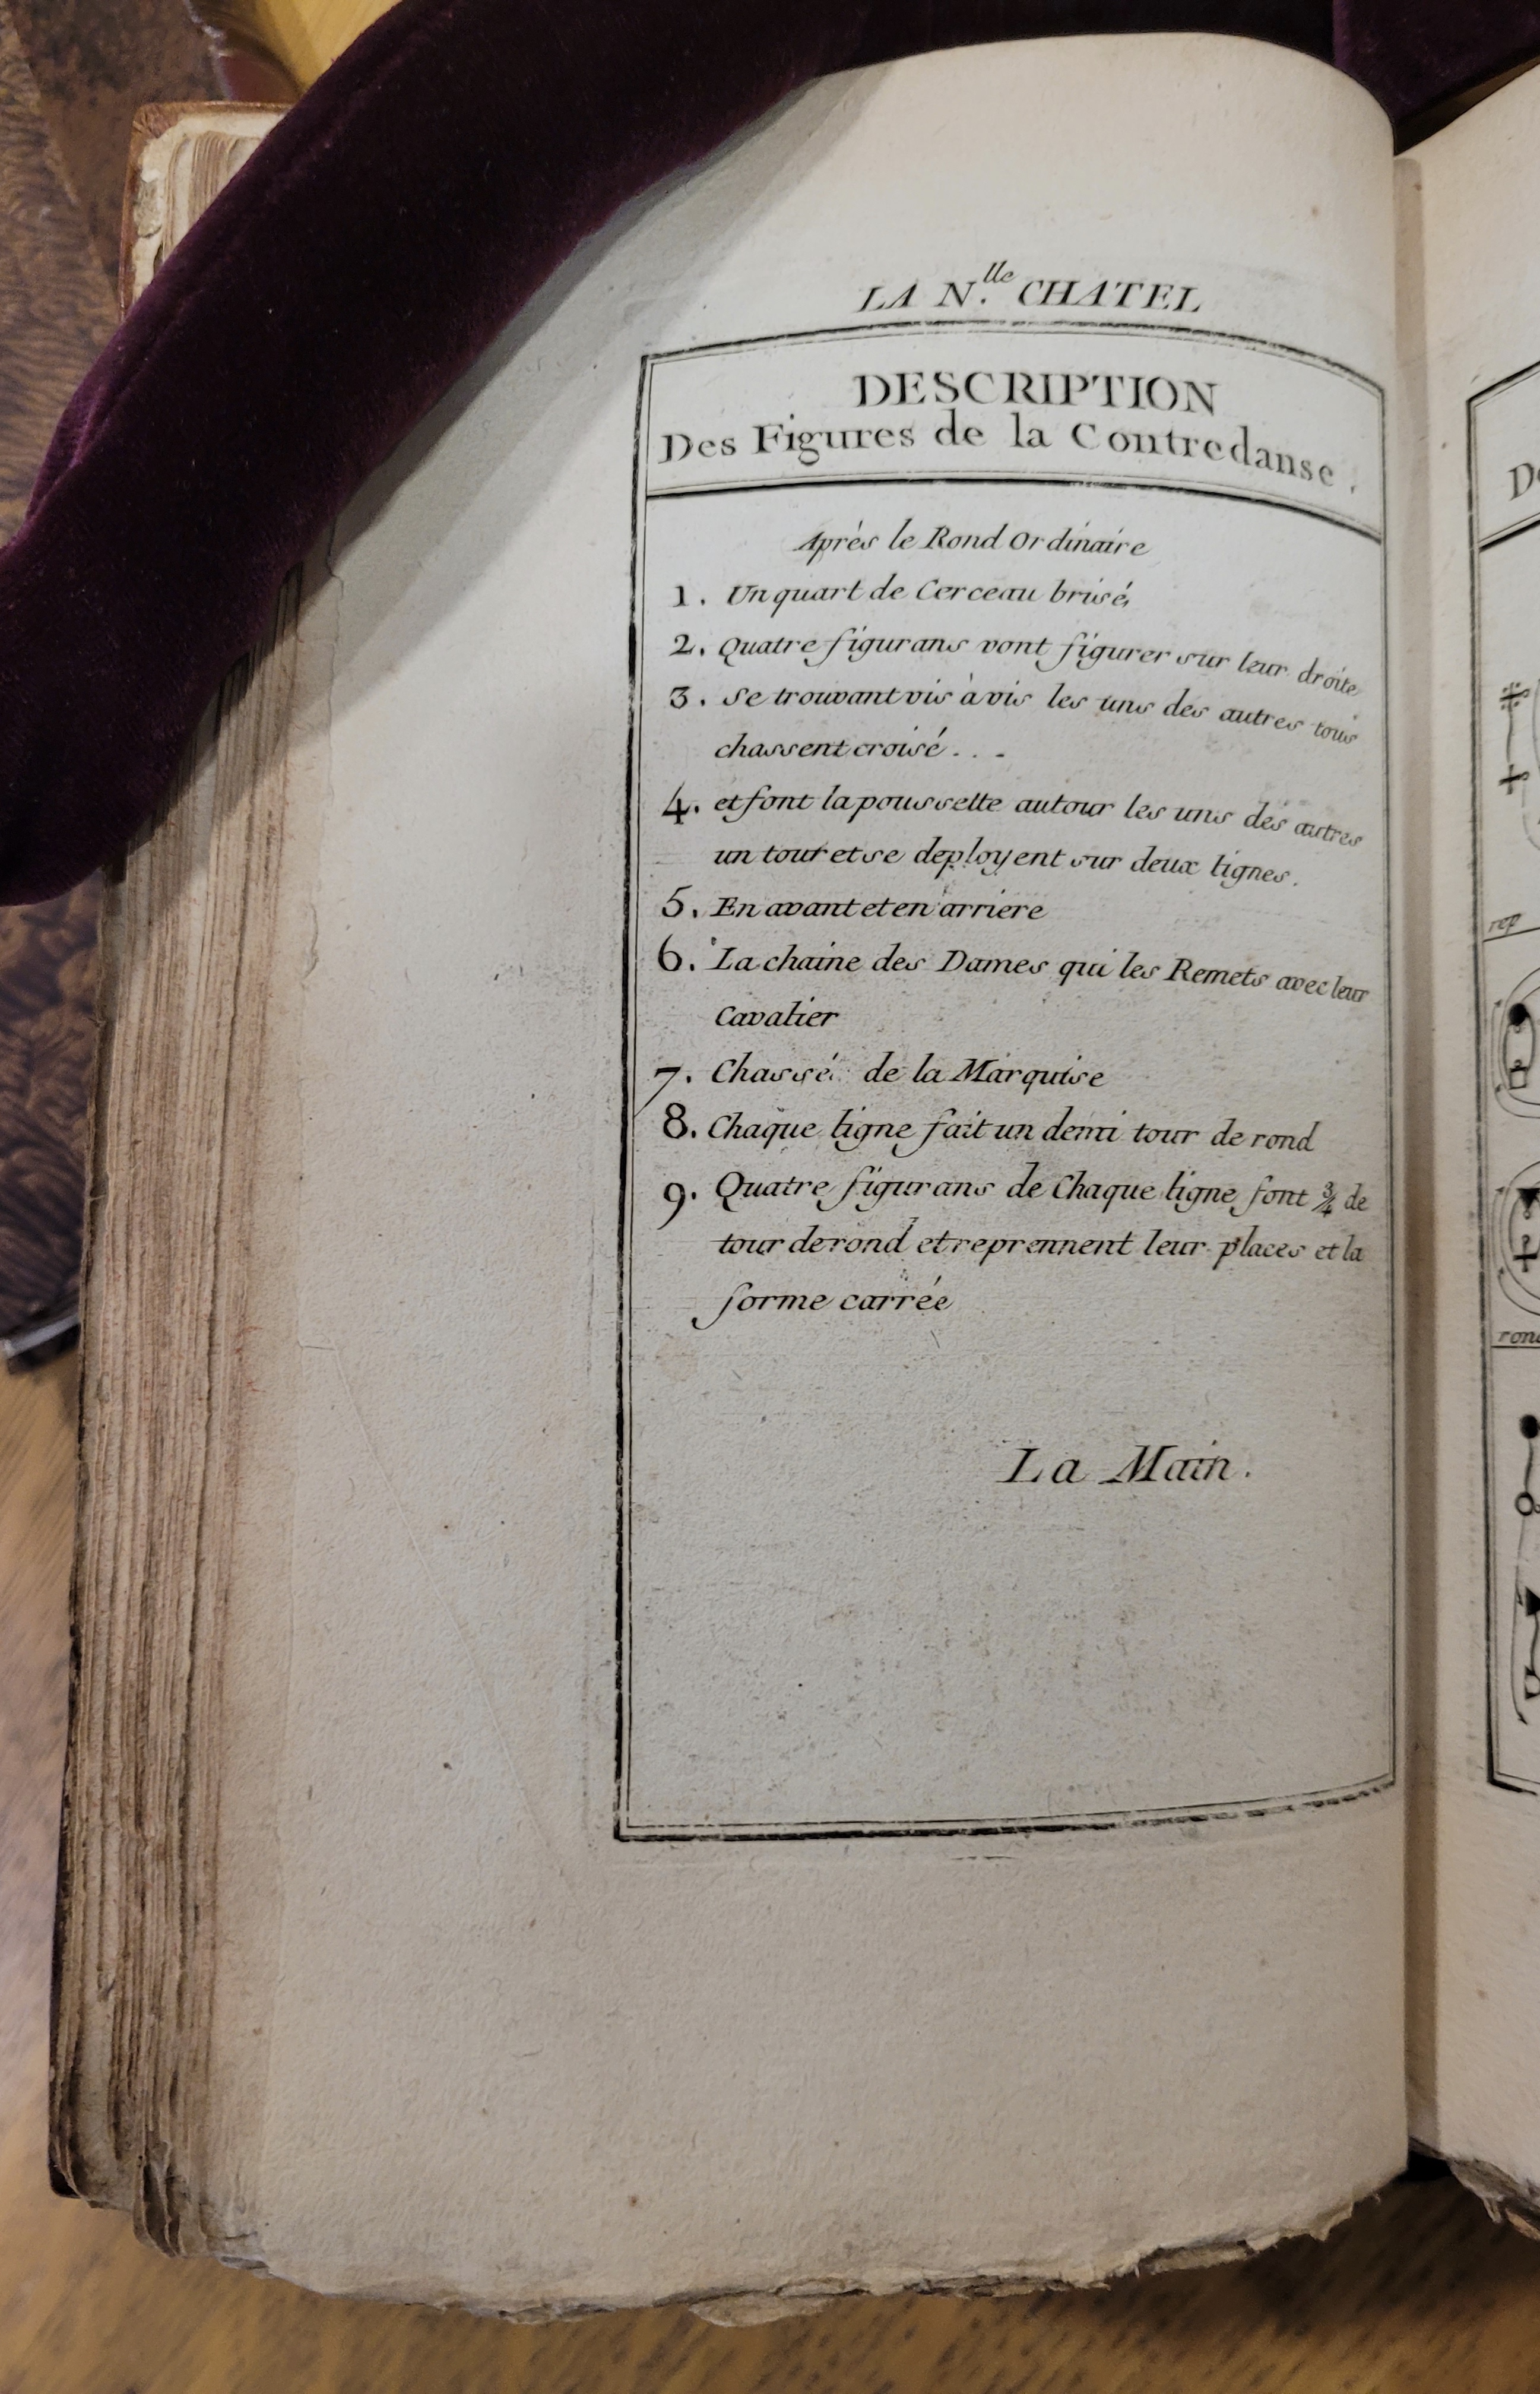 LA N.lle CHATEL
DESCRIPTION
Des Figures de la Contredanse.
Après le Rond Ordinaire
1. Un quart de Cerceau brisé
2. Quatre figurans vont figurer sur leur droite
3. Se trouvant vis à vis les uns des autres tous
chassent croisé . . .
4. et font la poussette autour les uns des autres
un tour et se deployent sur deux lignes.
5. En avant et en arriere
6. La chaine des Dames qui les Remets avec leur
Cavalier
7. Chassé de la Marquise
8. Chaque ligne fait un demi tour de rond
9. Quatre figurans de Chaque ligne font ¾ de
tour de rond et reprennent leur places et la
forme carrée
La Main.
rep